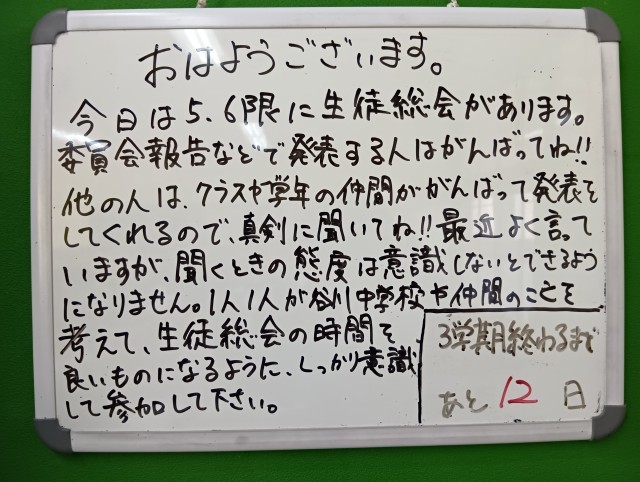 おはようございます。
今日は5、6限に生徒総会があります。
委員会報告などで発表する人はがんばってね!!
他の人は、クラスや学年の仲間ががんばって発表を
してくれるので、真剣に聞いてね!! 最近よく言って
いますが、聞くときの態度は意識しないとできるよう
になりません。1人1人が谷川中学校や仲間のことを
考えて、生徒総会の時間を
良いものになるように、しっかり意識
して参加して下さい。
3学期終わるまで
あと 12 日